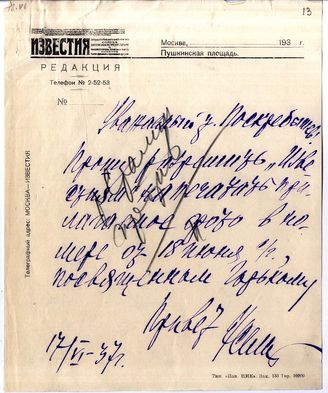 13
ИЗВЕСТИЯ
РЕДАКЦИЯ
Телефон № 2-52-53
Москва, 193 г.
Пушкинская площадь.
№
Телеграфный адрес: МОСКВА—ИЗВЕСТИЯ
Уважаемый т. Поскребышев.
Прошу разрешить „Изве
стиям" напечатать при
лагаемое фото в но
мере от 18 июня с/г,
посвященном Горькому
Привет
17/VI-37 г.
Тип. «Изв. ЦИК». Зак. 150 Тир. 10000